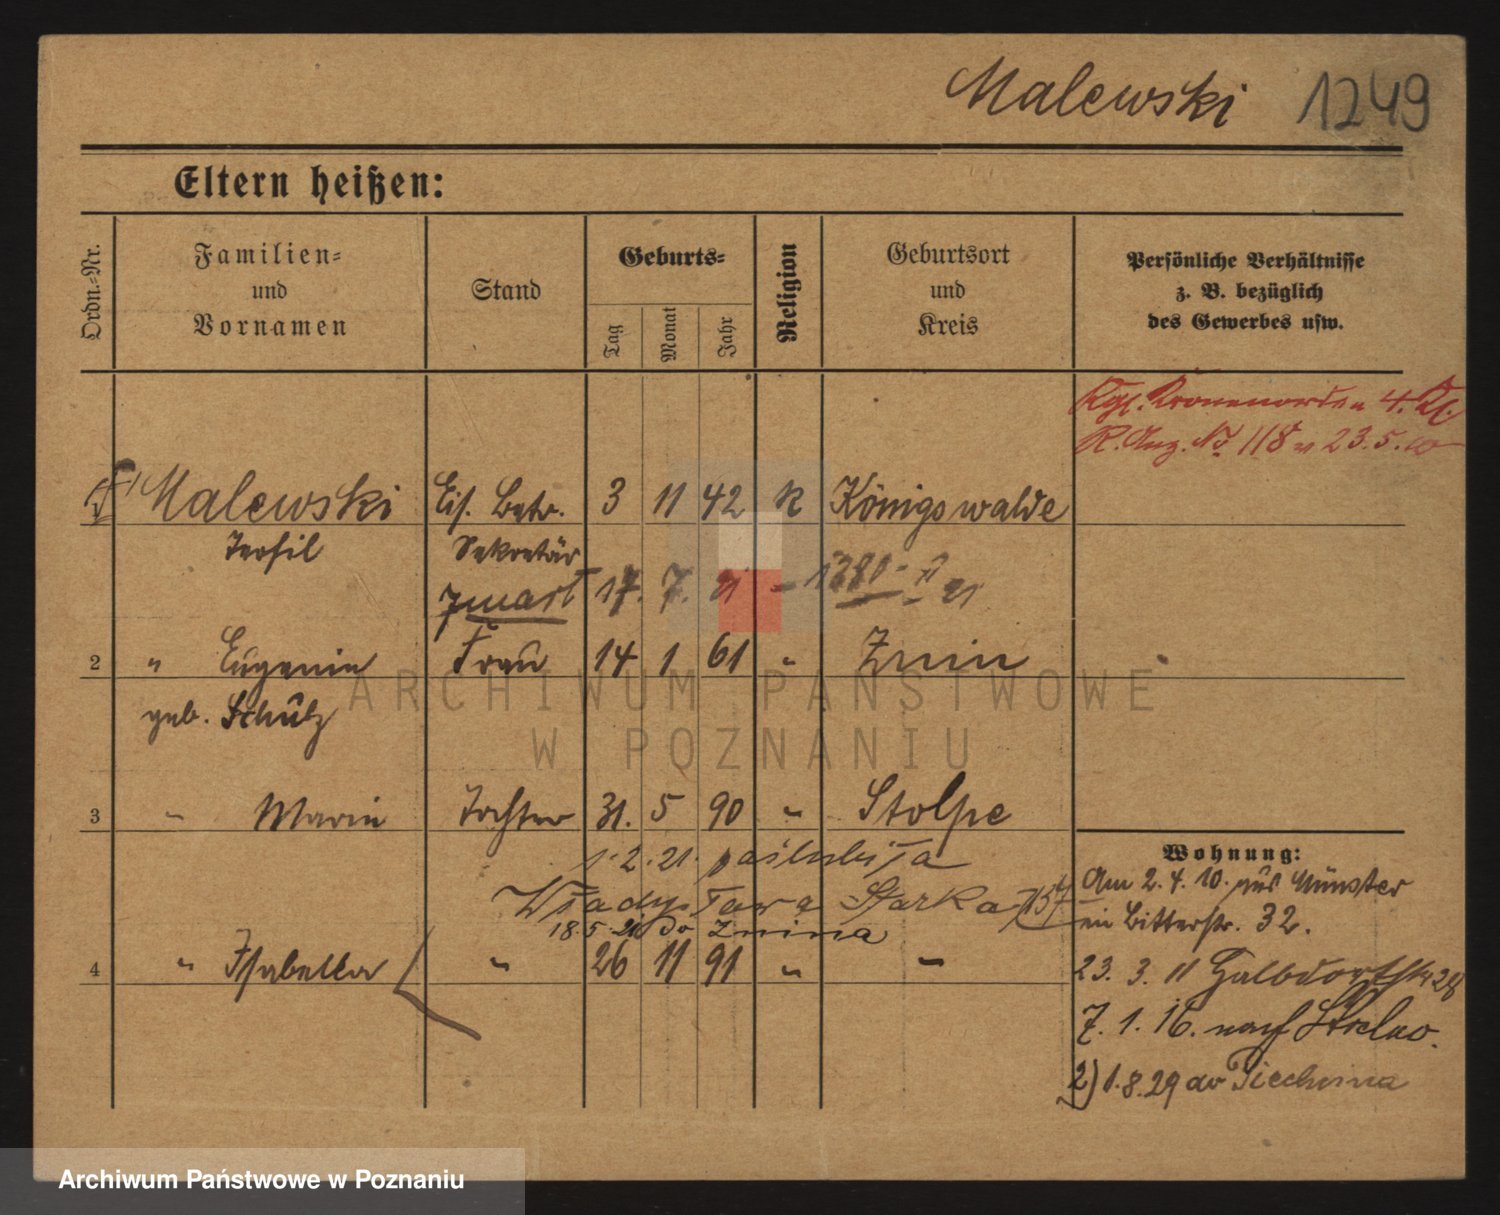 Malewski 1249
Eltern heißen:
Ordn.-Nr.
Familien-
und
Vornamen
Stand
Geburts-
Tag
Monat
Jahr
Religion
Geburtsort
und
Kreis
Persönliche Verhältnisse
z. B. bezüglich
des Gewerbes usw.
Kgl. Kronenorden 4. Kl.
R. Anz. No 118 v 23.5.
1 Malewski Eis. Betr. 3 11 42 K Königswalde
Teofil Sekretär
zmarł 17. 7. 21 - 1380 - II 21
2 " Eugenie Frau 14 1 61 " Znin
geb. Schütz
3 " Marie Tochter 31. 5 90 " Stolpe
1.2.21. poślubiła
Władysława Starka
18.5.21 do Znina
4 " Isabella " 26 11 91 " "
Wohnung:
Am 2.4.10. aus Münster
ein Bitterstr. 32.
23. 3. 11. Halbdorfstr 28
7. 1. 16. nach Strelno.
2) 1.8.29 do Piechcina
ARCHIWUM PAŃSTWOWE
W POZNANIU
Archiwum Państwowe w Poznaniu